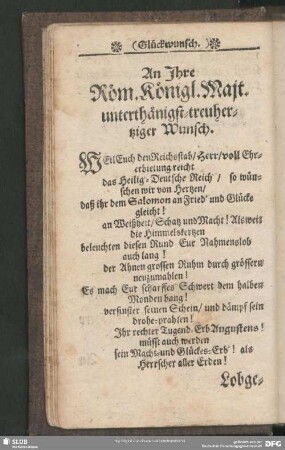 (Glückwunsch.)
An Ihre
Röm. Königl. Majt.
unterthänigst-treuher-
tziger Wunsch.
WEil Euch den Reichsstab / Herr / voll Ehr-
erbietung reicht
das Heilig-Deutsche Reich / so wün-
schen wir von Hertzen /
daß ihr dem Salomon an Fried' und Glücke
gleicht!
an Weißheit / Schatz und Macht! Als weit
die Himmelskertzen
beleuchten diesen Rund Eur Nahmenslob
auch lang!
der Ahnen grossen Ruhm durch grössern
neuzumahlen!
Es mach Eur scharffes Schwert dem halben
Monden bang!
verfinster seinen Schein / und dämpf sein
drohe-prahlen!
Ihr rechter Tugend-Erb Augustens!
müsst auch werden
sein Machs- und Glückes-Erb'! als
Hertscher aller Erden!
Lobge-
SLUB
DFG